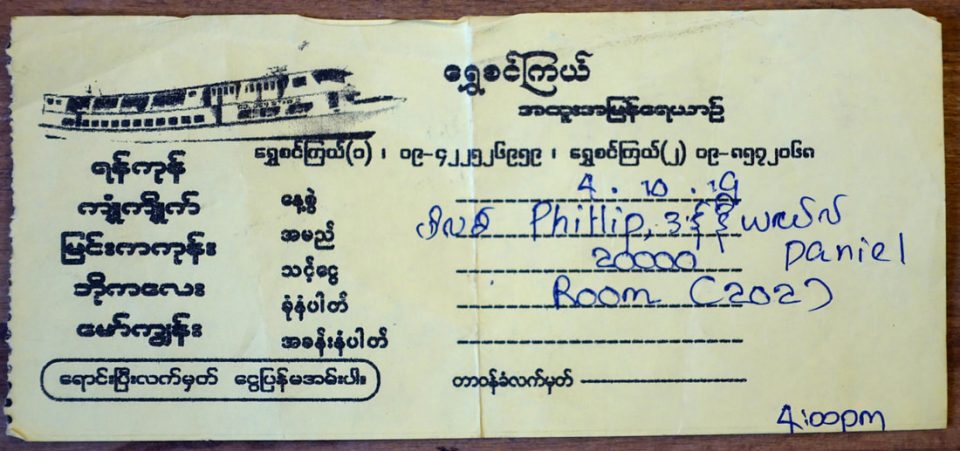 ရွှေစင်ကြယ်
အထူးအမြန်ရေယာဉ်
ရွှေစင်ကြယ်(၁) ၊ ၀၉-၄၂၂၅၂၆၉၅၉ ၊ ရွှေစင်ကြယ်(၂) ၀၉-၈၅၇၂၀၆၈
ရန်ကုန်
ကျုံကျိုက်
မြင်းကကုန်း
ဘိုကလေး
မော်ကျွန်း
နေ့စွဲ 4.10.19
အမည် ဖိလစ် Phillip, ဒန်နီယယ်လ် Daniel
သင့်ငွေ 20000
ခုံနံပါတ် Room (202)
အခန်းနံပါတ်
ရောင်းပြီးလက်မှတ် ငွေပြန်မအမ်းပါ။
တာဝန်ခံလက်မှတ်
4:00pm